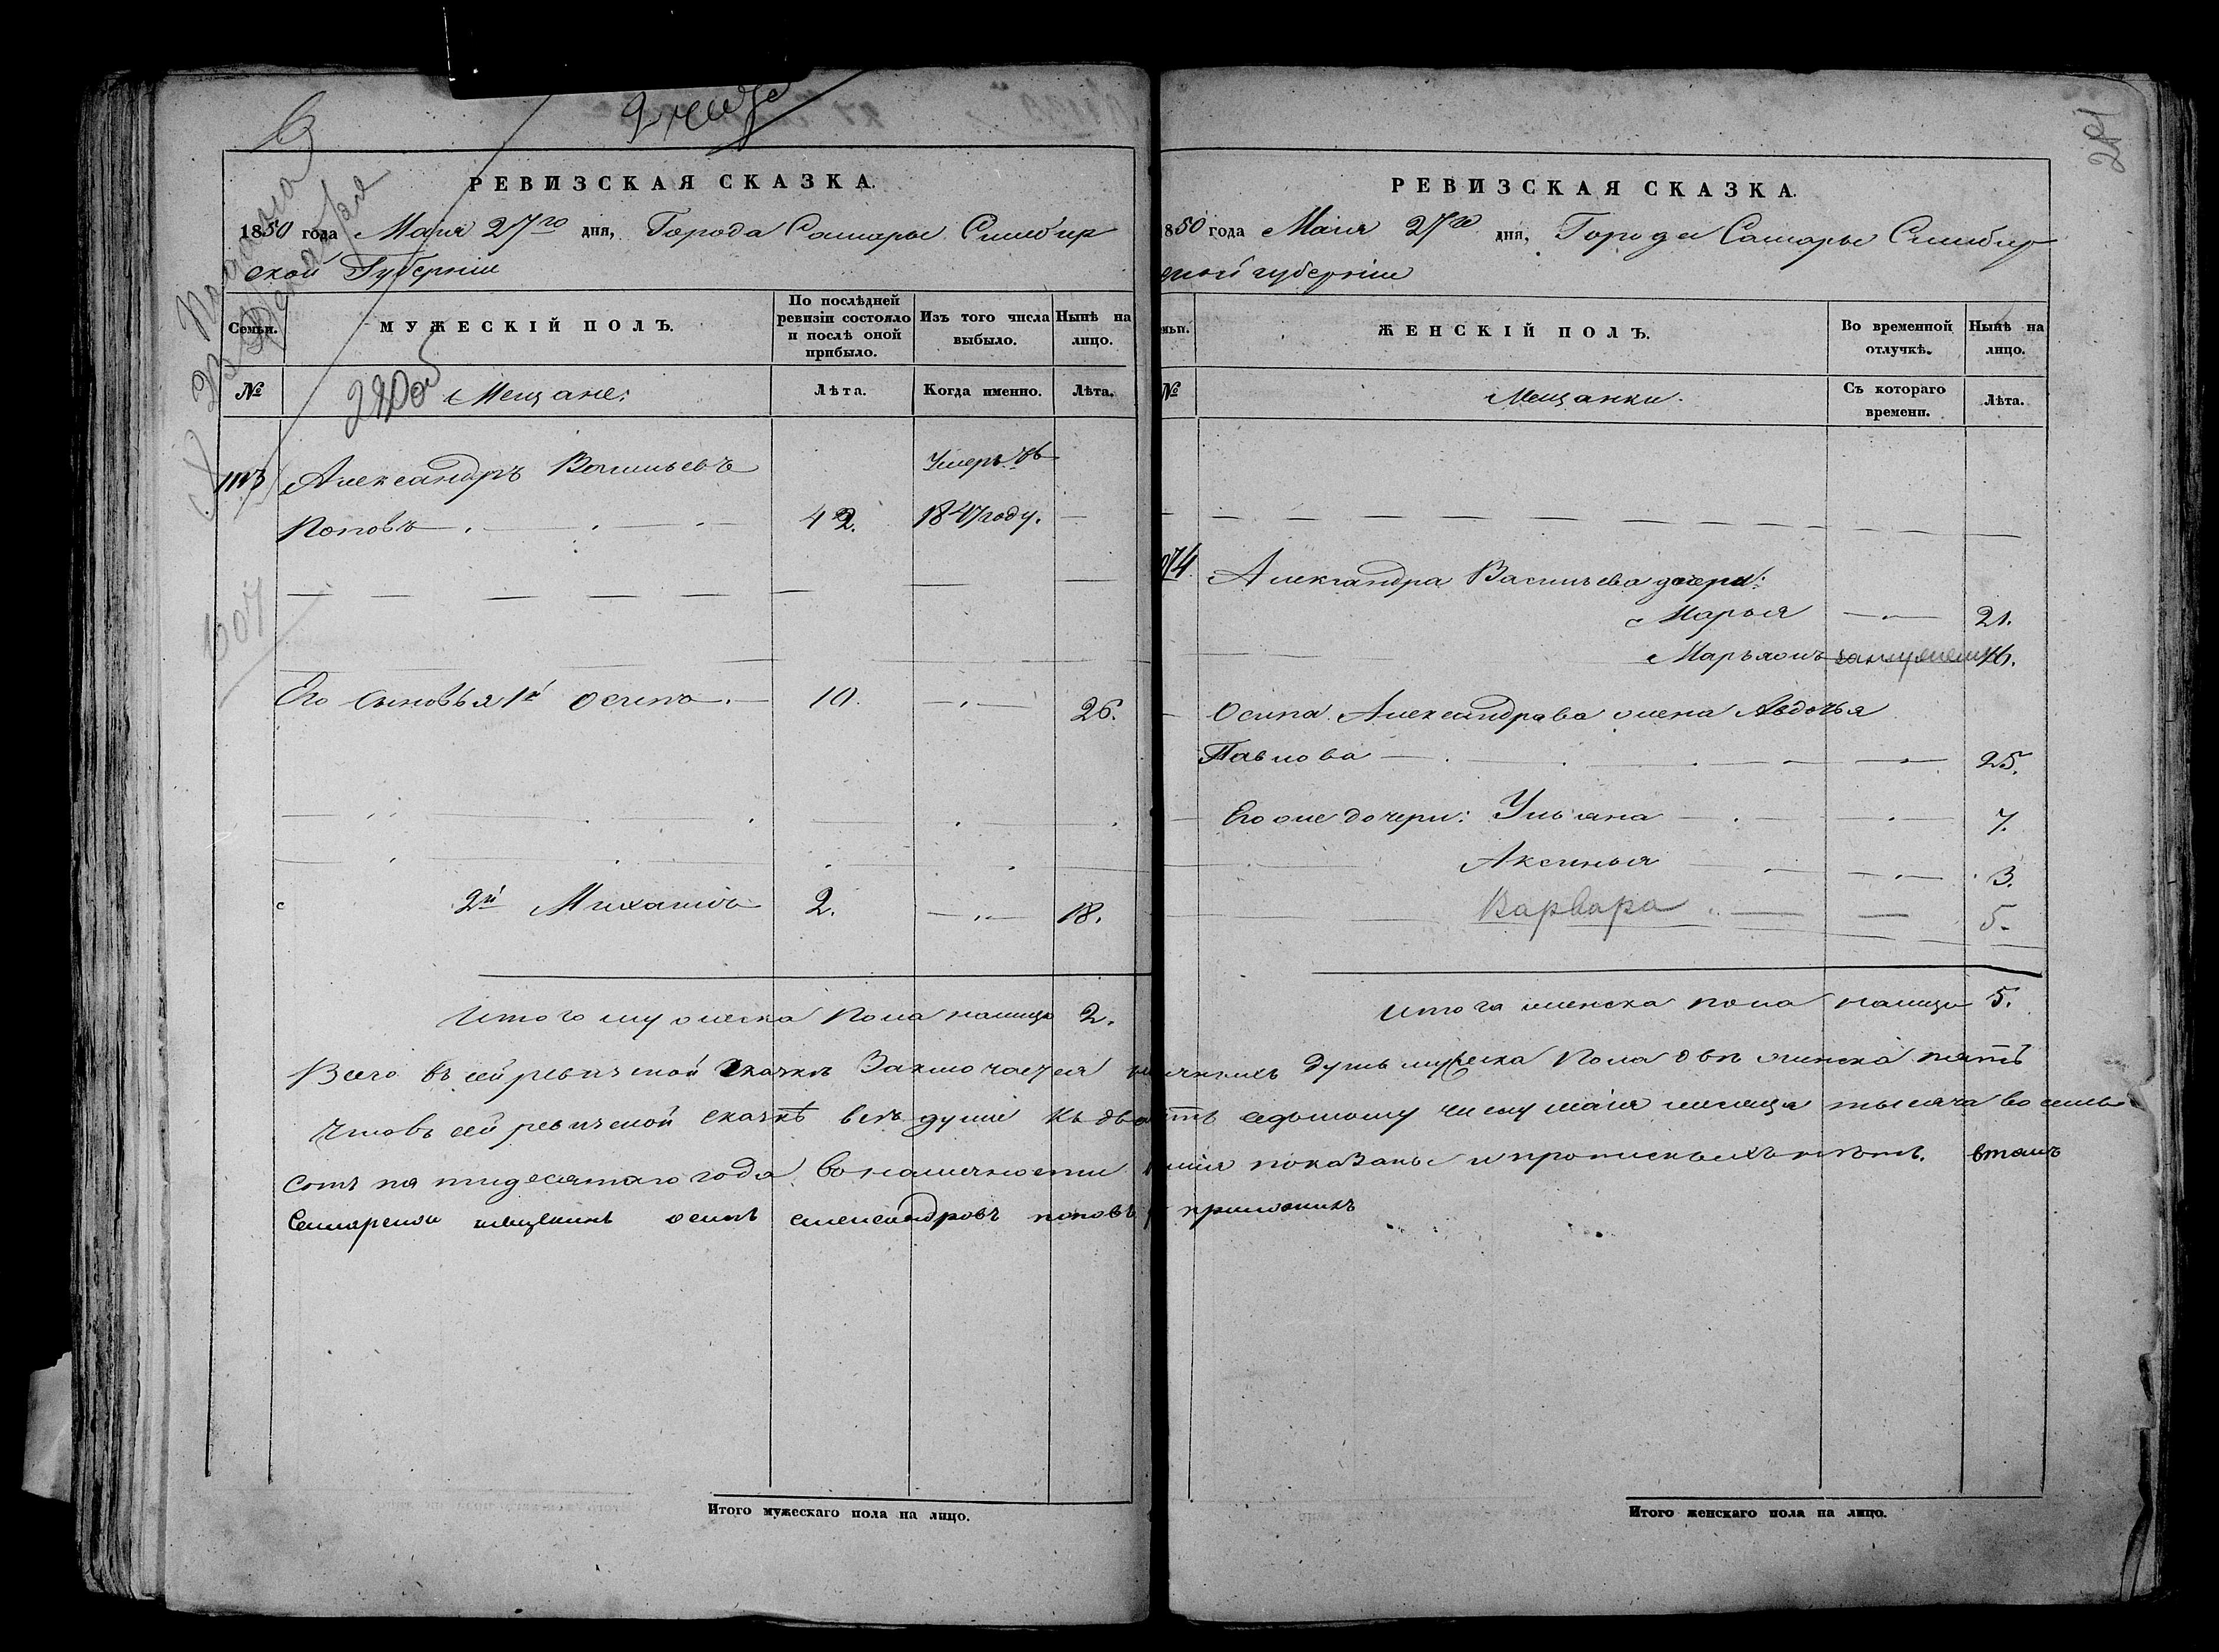 РЕВИЗСКАЯ СКАЗКА.
1850 года Маія 27го дня, Города Самары Симбир
ской Губерніи
Семьи.
МУЖЕСКІЙ ПОЛЪ.
По послѣдней ревизіи состояло и послѣ оной прибыло.
Изъ того числа выбыло.
Нынѣ на лицо.
№
Мещане:
Лѣта.
Когда именно.
Лѣта.
Александръ Васильевъ Умеръ въ
Поповъ 42. 1847 году.
Его сыновья 1й Осипъ 10. 26.
2й Михаилъ 2. 18.
Итого мужеска пола налицо 2.
Итого мужескаго пола на лицо.
РЕВИЗСКАЯ СКАЗКА.
1850 года Маія 27го дня, Города Самары Симбир
ской губерніи
ЖЕНСКІЙ ПОЛЪ.
Во временной отлучкѣ.
Нынѣ на лицо.
№
Мещанки.
Съ котораго времени.
Лѣта.
Александра Васильева дочери:
Марья 21.
Осипа Александрава жена Авдотья
Павлова 25.
Его же дочери: Ульяна 7.
Аксинья 3.
Варвара 5.
Итого женска пола налицо 5.
Всего въ сей ревизской сказкѣ Заключается наличныхъ душъ мужеска пола двѣ женска пять
Что въ сей ревизской сказкѣ всѣ души къ двадцать седьмому числу маія месяца тысяча восемь
сотъ пятидесятаго года въ наличности показаны и прописныхъ нѣтъ. втомъ
Самарской мещенинъ осипъ александровъ поповъ
Итого женскаго пола на лицо.